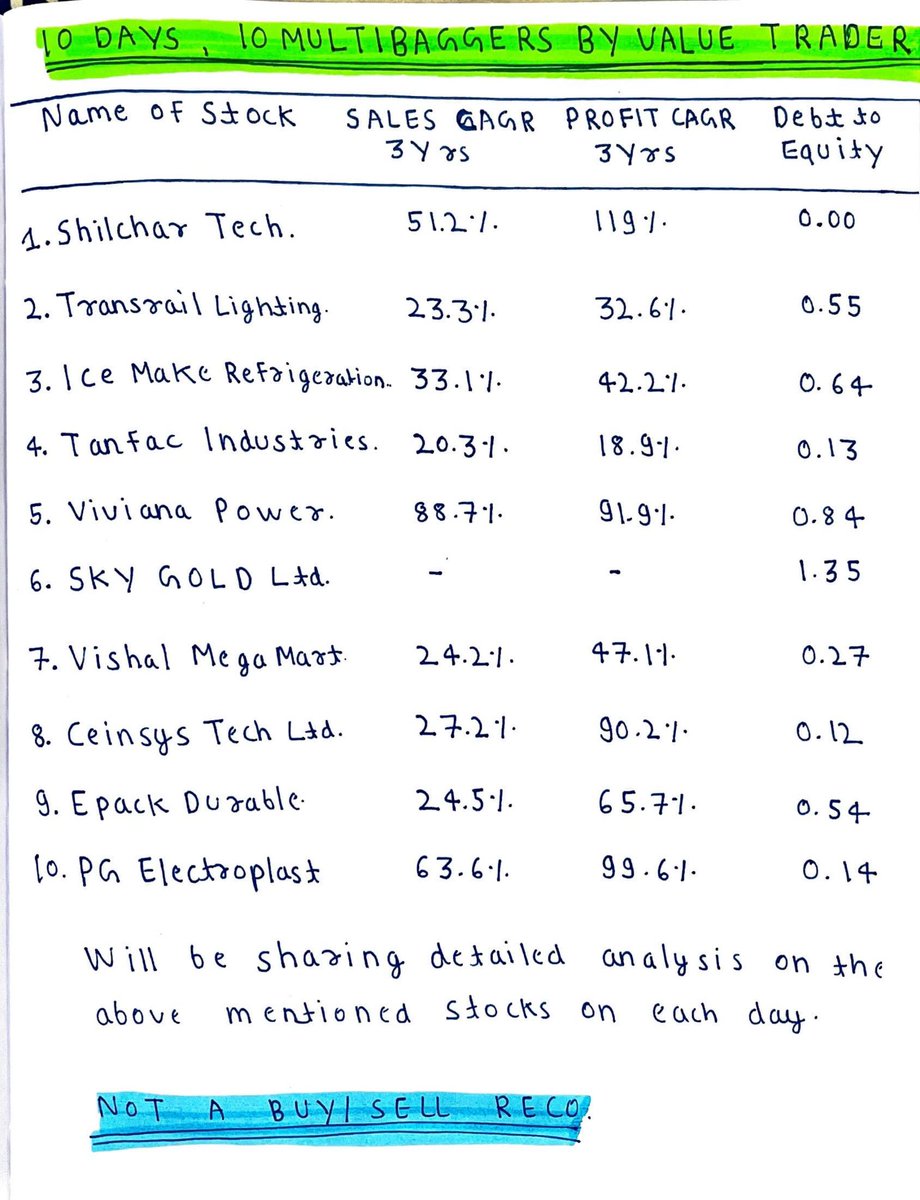 10 DAYS, 10 MULTIBAGGERS BY VALUE TRADER
Name of Stock SALES CAGR 3Yrs PROFIT CAGR 3Yrs Debt to Equity
1. Shilchar Tech. 51.2% 119% 0.00
2. Transrail Lighting. 23.3% 32.6% 0.55
3. Ice Make Refrigeration.. 33.1% 42.2% 0.64
4. Tanfac Industries. 20.3% 18.9% 0.13
5. Viviana Power. 88.7% 91.9% 0.84
6. SKY GOLD Ltd. - - 1.35
7. Vishal Mega Mart. 24.2% 47.1% 0.27
8. Ceinsys Tech Ltd. 27.2% 90.2% 0.12
9. Epack Durable. 24.5% 65.7% 0.54
10. PG Electroplast 63.6% 99.6% 0.14
Will be sharing detailed analysis on the
above mentioned stocks on each day.
NOT A BUY/SELL RECO.